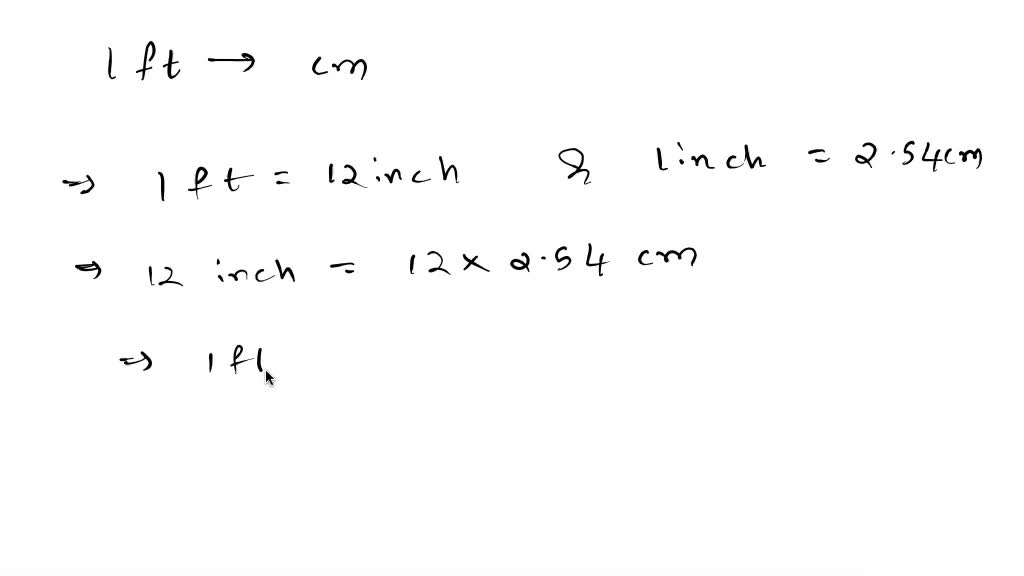 1 ft → cm
⇒ 1 ft = 12 inch & 1 inch = 2.54 cm
⇒ 12 inch = 12 × 2.54 cm
⇒ 1 ft